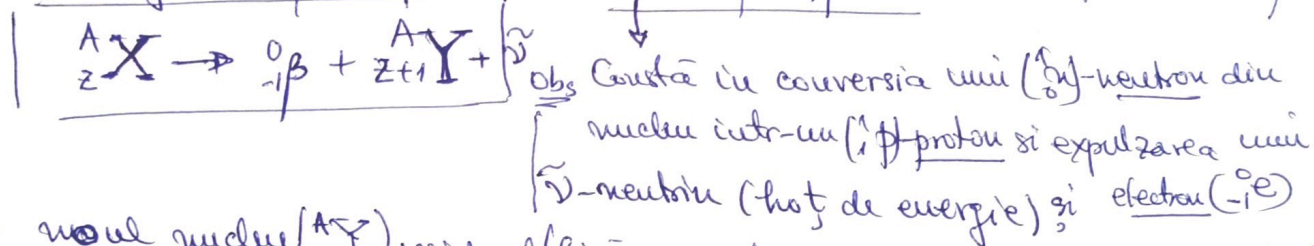 ᴬ_Z X → ⁰₋₁β + ᴬ_Z+1 Y + ν̃
Obs Constă in conversia unui (¹₀n)-neutron din
nucleu intr-un (¹₁p)-proton si expulzarea unui
ν̃-neutrin (hoț de energie) și electron (⁰₋₁e)
noul nucleu (ᴬY)